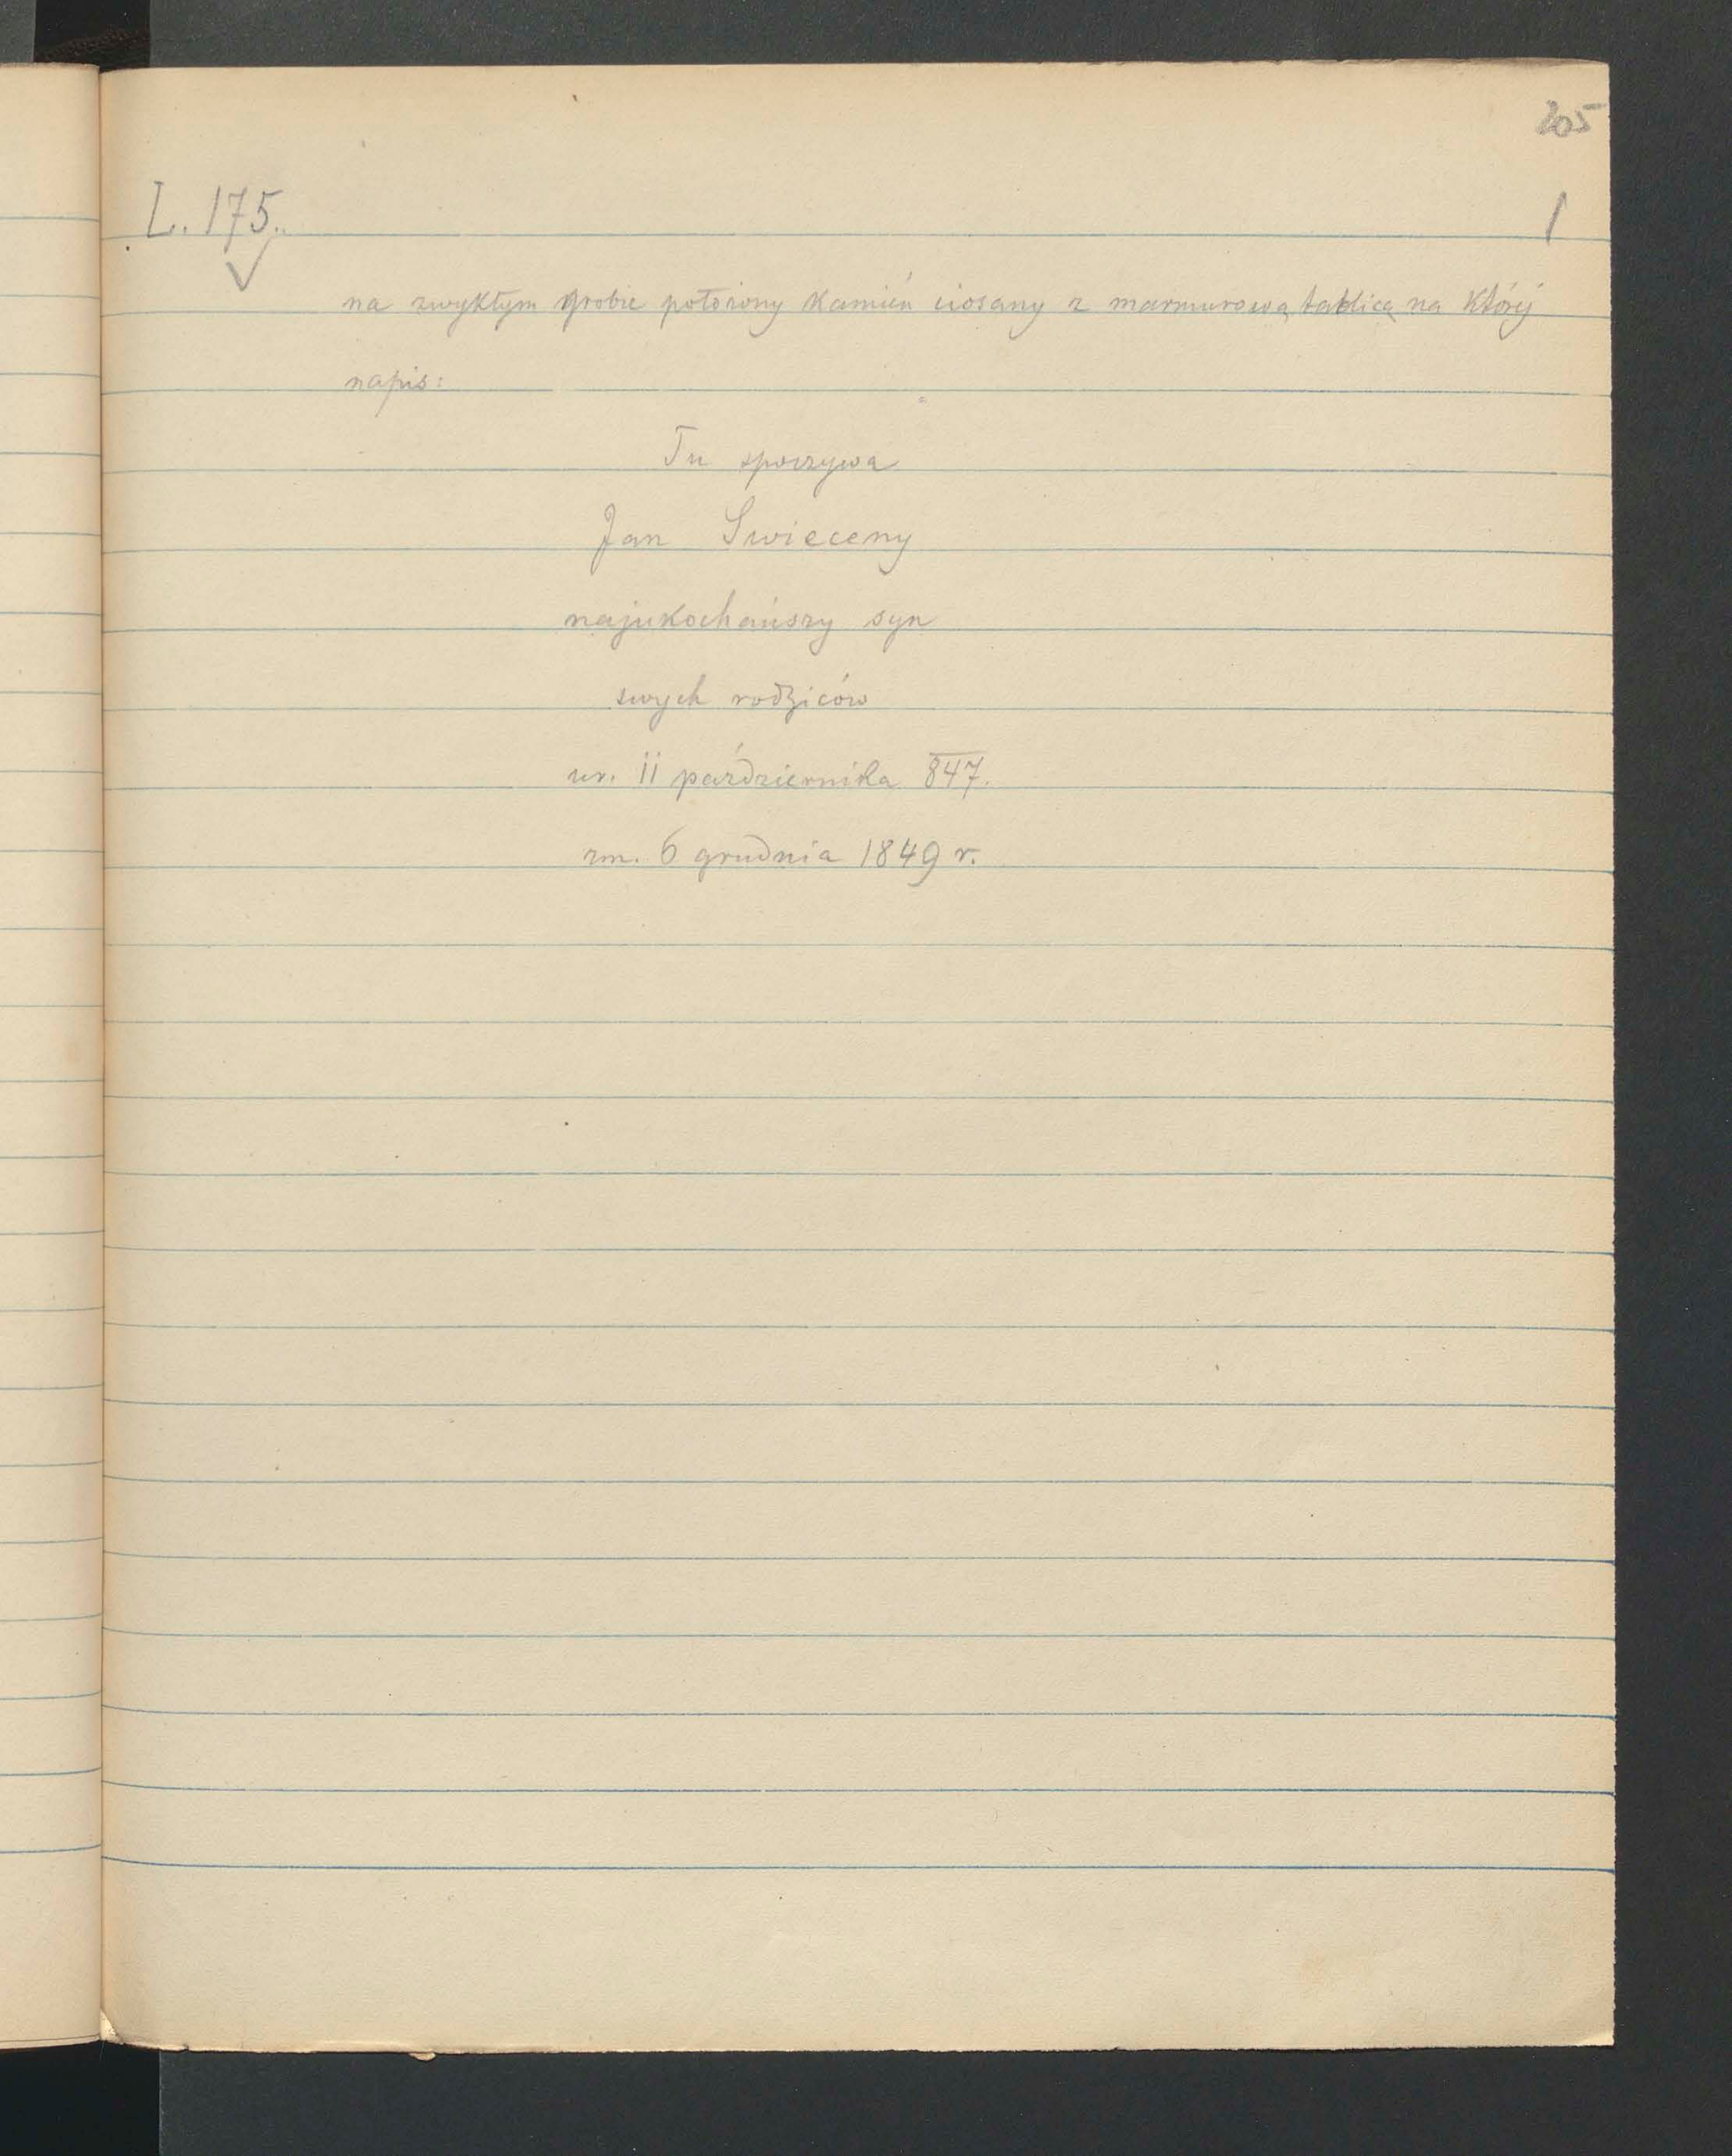 205
L. 175.
1
na zwykłym grobie położony kamień ciosany z marmurową tablicą na któréj
napis:
Tu spoczywa
Jan Swieceny
najukochańszy syn
swych rodziców
ur. 11 października 847.
zm. 6 grudnia 1849 r.